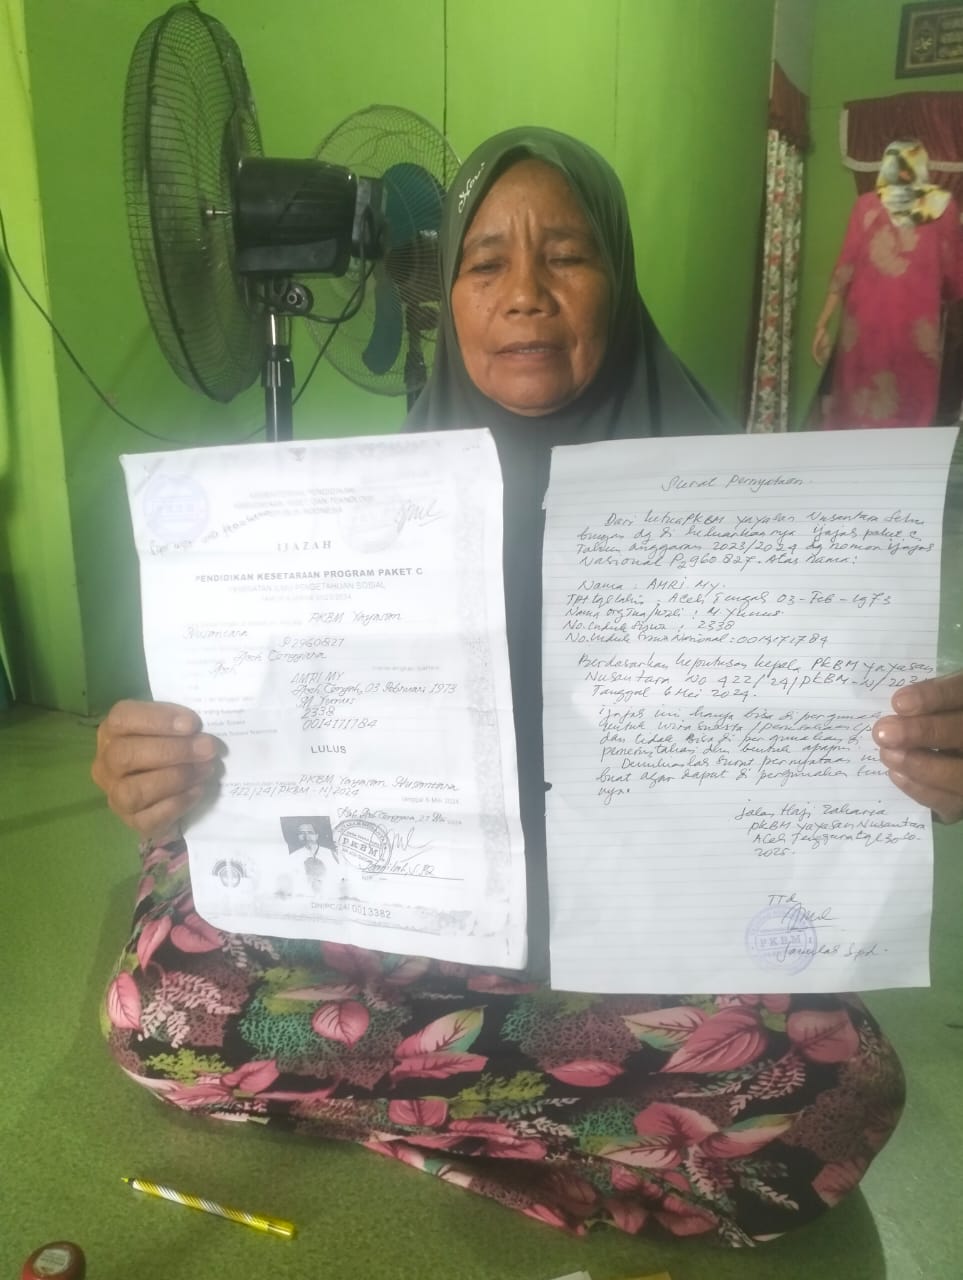 IJAZAH
PENDIDIKAN KESETARAAN PROGRAM PAKET C
PENGETAHUAN SOSIAL
PKBM Yayasan
Nusantara
P2960827
Aceh Tenggara
Aceh
AMRI MY
Aceh Tengah, 03 Februari 1973
M Yunus
2338
LULUS
PKBM Yayasan Nusantara
422/24/PKBM-N/2024
tanggal 6 Mei 2024
PKBM
DN/PC/24/0013382
Surat Pernyataan.
Dari ketua PKBM yayasan Nusantara Sehu
bungan dg di keluarkannya Ijajas paket c
Tahun anggaran 2023/2024 dg nomor ijajas
Nasional P2960827. Atas Nama:
Nama : AMRI. MY.
Tpt tgl lahir : Aceh Tengah 03-Feb-1973
Nama orgTua/wali : M. Yunus
No. induk siswa : 2338
No. induk siswa Nasional : 0014171784
Berdasarkan keputusan kepala PKBM yayasan
Nusantara No 422/24/PKBM-N/202
Tanggal 6 Mei 2024.
ijajas ini hanya bisa di perguna
untuk wira swasta /
dan tidak bisa di per gunakan d
pemerintahan dlm bentuk apapun
Demikianlas surat pernyataan
buat agar dapat di pergunakan
nya.
jalan Haji Zakaria
PKBM yayasan Nusantara
Aceh Tenggara tgl 30-10-
2025.
TTd
PKBM